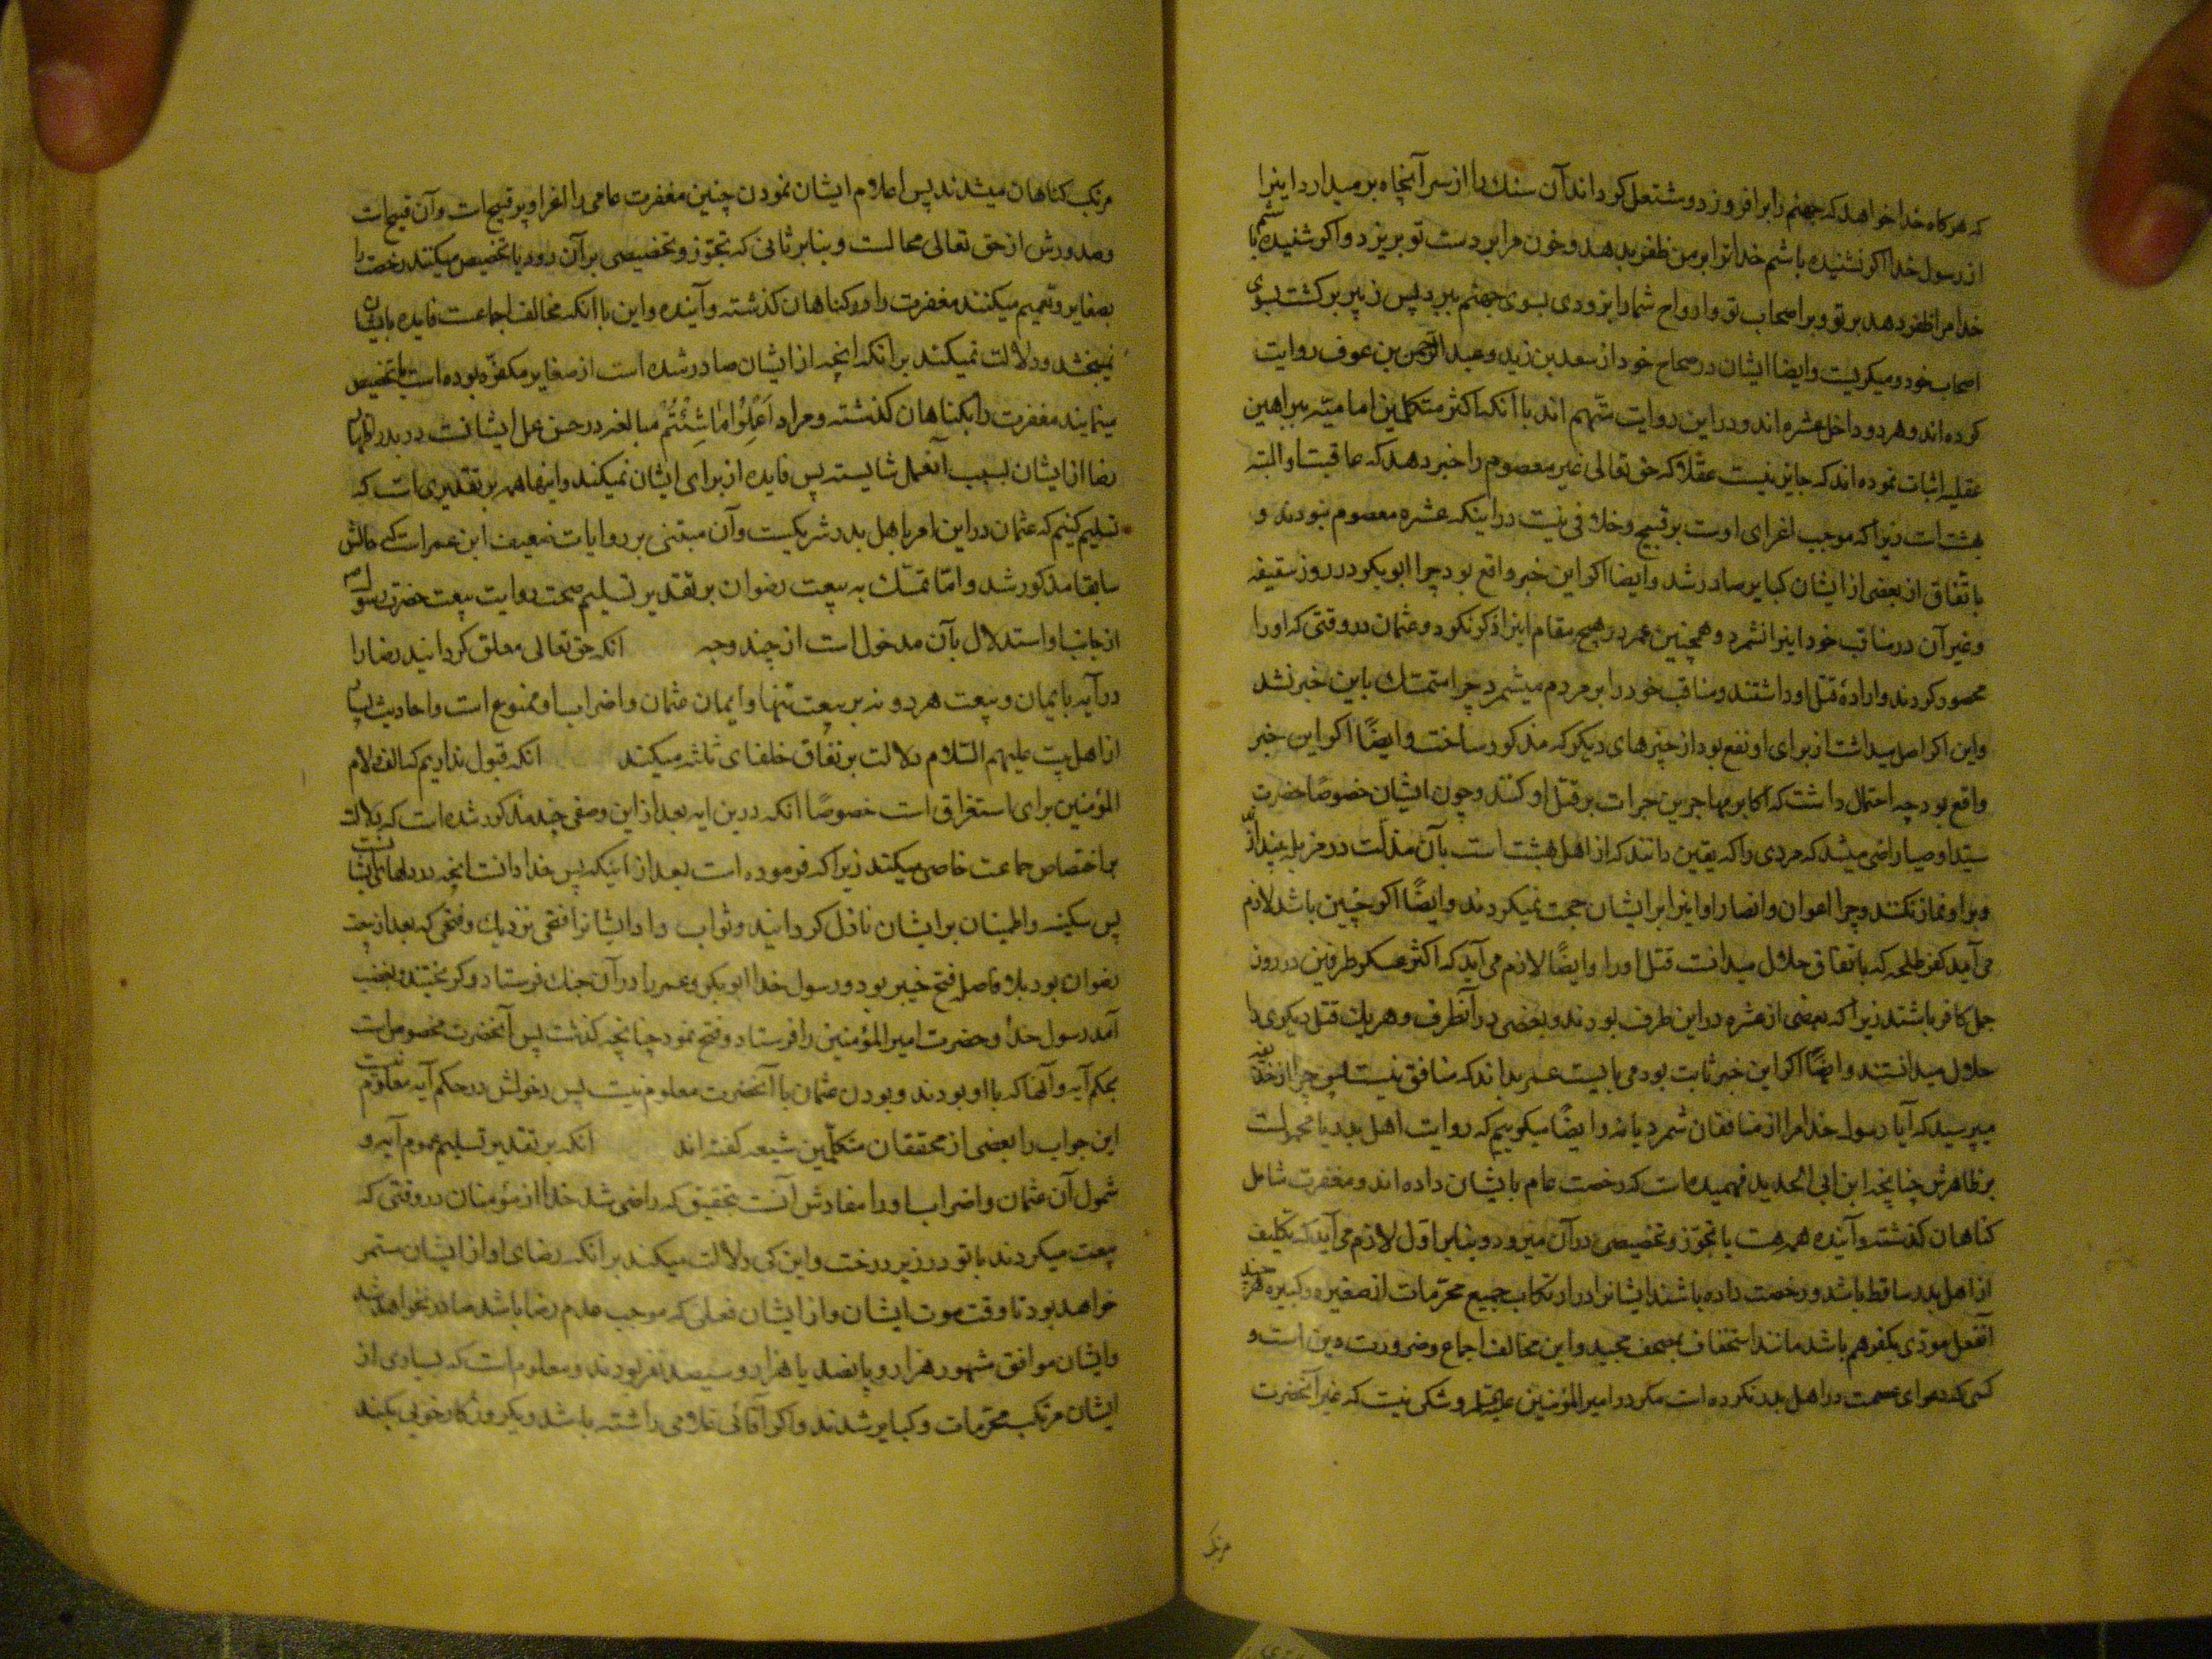 که هرکاه خدا خواهد که جهنم را برافروزد و مشتعل کرداند آن سنك را از سر آنچاه برمیدارد اینرا
از رسول خدا اکر نشنیده باشم خدا ترا بر من ظفر بدهد و خون مرا بر دست تو بریزد و اکر شنیده باشم
خدا مرا ظفر دهد بر تو و بر اصحاب تو و ارواح شما را بزودی بسوی جهنم ببرد پس زبیر برکشت بسوی
اصحاب خود و میکریست و ایضا ایشان در صحاح خود از سعد بن زید و عبد الرحمن بن عوف روایت
کرده اند و هر دو داخل عشره اند و در این روایت متهم اند با انکه اکثر متکلمین امامیّه ببراهین
عقلیه اثبات نموده اند که جایز نیست عقلا که حق تعالی غیر معصوم را خبر دهد که عاقبت او البته
بهشت است زیرا که موجب اغرای اوست بر قبیح و خلافی نیست در اینکه عشره معصوم نبودند و
باتّفاق از بعضی از ایشان کبایر صادر شد و ایضا اکر این خبر واقع بود چرا ابو بکر در روز سقیفه
و غیر آن در مناقب خود اینرا نشمرد و همچنین عمر در هیچ مقام اینرا ذکر نکرد و عثمان در وقتی که او را
محصور کردند و ارادۀ قتل او داشتند و مناقب خود را بر مردم میشمرد چرا متمسّك باین خبر نشد
و این اکر اصل میداشت از برای او نفع بود از چیزهای دیکر که مذکور ساخت و ایضًا اکر این خبر
واقع بود چه احتمال داشت که اکابر مهاجرین جرات بر قتل او کنند و چون ایشان خصوصًا حضرت
سیّد اوصیا راضی میشد که مردی را که یقین دانند که از اهل بهشت است بآن مذلّت در مزبله بیندازند
و بر او نماز نکنند و چرا اعوان و انصار او اینرا بر ایشان حجت نمیکردند و ایضًا اکر چنین باشد لازم
می آید کفر طلحه که باتفاق حلال میدانست قتل او را و ایضًا لازم می آید که اکثر عسکر طرفین در روز
جمل کافر باشند زیرا که بعضی از عشره در این طرف بودند و بعضی در آنطرف و هریك قتل دیکری را
حلال میدانستند و ایضًا اکر این خبر ثابت بود می بایست عمر بداند که منافق نیست پس چرا از حذیفه
میپرسید که آیا رسول خدا مرا از منافقان شمرد یا نه و ایضًا میکوییم که روایت اهل بدر یا محمولست
بر ظاهرش چنانچه ابن ابی الحدید فهمیده است که رخصت عام بایشان داده اند و مغفرت شامل
کناهان کذشته و آینده همه هست یا تجوّز و تخصیصی در آن میرود و بنابر اول لازم می آید که تکلیف
از اهل بدر ساقط باشد و رخصت داده باشند ایشانرا در ارتکاب جمیع محرّمات از صغیره و کبیره هر چند
آنفعل مؤدی بکفر هم باشد مانند استخفاف بمصحف مجید و این مخالف اجماع و ضرورت دین است و
کسی که دعوای عصمت در اهل بدر نکرده است مکر در امیر المؤمنین علیه و شکی نیست که غیر آنحضرت
مرتکب
مرتکب کناهان میشدند پس اعلام ایشان نمودن چنین مغفرت عامی را اغراء بر قبیح است و آن قبیح است
و صدورش از حق تعالی محالست و بنابر ثانی که تجوّز و تخصیصی بر آن رود یا تخصیص میکنند رخصت را
بصغایر و تعمیم میکنند مغفرت را در کناهان کذشته و آینده و این با انکه مخالف اجماعست فایده بایشان
نمیبخشد و دلالت نمیکند بر انکه انچه از ایشان صادر شده است از صغایر مکفّره بوده است یا تخصیص
مینمایند مغفرت را بکناهان کذشته و مراد اعْمَلُوا مَا شِئْتُمْ مبالغه در حسن عمل ایشانست در بدر و اظهار
رضا از ایشان بسبب آنعمل شایسته پس فایده از برای ایشان نمیکند و اینها همه بر تقدیری است که
تسلیم کنیم که عثمان در این امر با اهل بدر شریکست و آن مبتنی بر روایات ضعیف ابن عمر است که حالش
سابقا مذکور شد و امّا تمسّك به بیعت رضوان بر تقدیر تسلیم صحت روایت بیعت حضرت رسول
از جانب او استدلال بآن مدخول است از چند وجه انکه حق تعالی معلق کردانید رضا را
در آیه بایمان و بیعت هر دو نه بر بیعت تنها و ایمان عثمان و اضراب او ممنوع است و احادیث بسیار
از اهل بیت علیهم السّلام دلالت بر نفاق خلفای ثلثه میکند انکه قبول نداریم که الف و لام
المؤمنین برای استغراق است خصوصًا انکه در این ایه بعد از این وصفی چند مذکور شده است که دلالت
بر اختصاص جماعت خاصی میکنند زیرا که فرموده است بعد از اینکه پس خدا دانست انچه در دلهای ایشانست
پس سکینه و اطمینان بر ایشان نازل کردانید و ثواب داد ایشانرا فتحی نزدیك و فتحی که بعد از بیعت
رضوان بود بلا فاصله فتح خیبر بود و رسول خدا ابو بکر و عمر را در آن جنك فرستاد و کریختند و بغضب
آمد رسول خدا و حضرت امیر المؤمنین را فرستاد و فتح نمود چنانچه کذشت پس آنحضرت مخصوص است
بحکم آیه و آنها که با او بودند و بودن عثمان با آنحضرت معلوم نیست پس دخولش در حکم آیه معلوم نیست
این جواب را بعضی از محققان متکلمین شیعه کفته اند انکه بر تقدیر تسلیم عموم آیه و
شمول آن عثمان و اضراب او را مفادش آنست بتحقیق که راضی شد خدا از مؤمنان در وقتی که
بیعت میکردند با تو در زیر درخت و این کی دلالت میکند بر انکه رضای او از ایشان مستمر
خواهد بود تا وقت موت ایشان و از ایشان فعلی که موجب عدم رضا باشد صادر نخواهد شد
و ایشان موافق مشهور هزار و پانصد یا هزار و سیصد نفر بودند و معلوم است که بسیاری از
ایشان مرتکب محرّمات و کبایر شدند و اکر آقائی غلامی داشته باشد و یکروز کار خوبی بکند